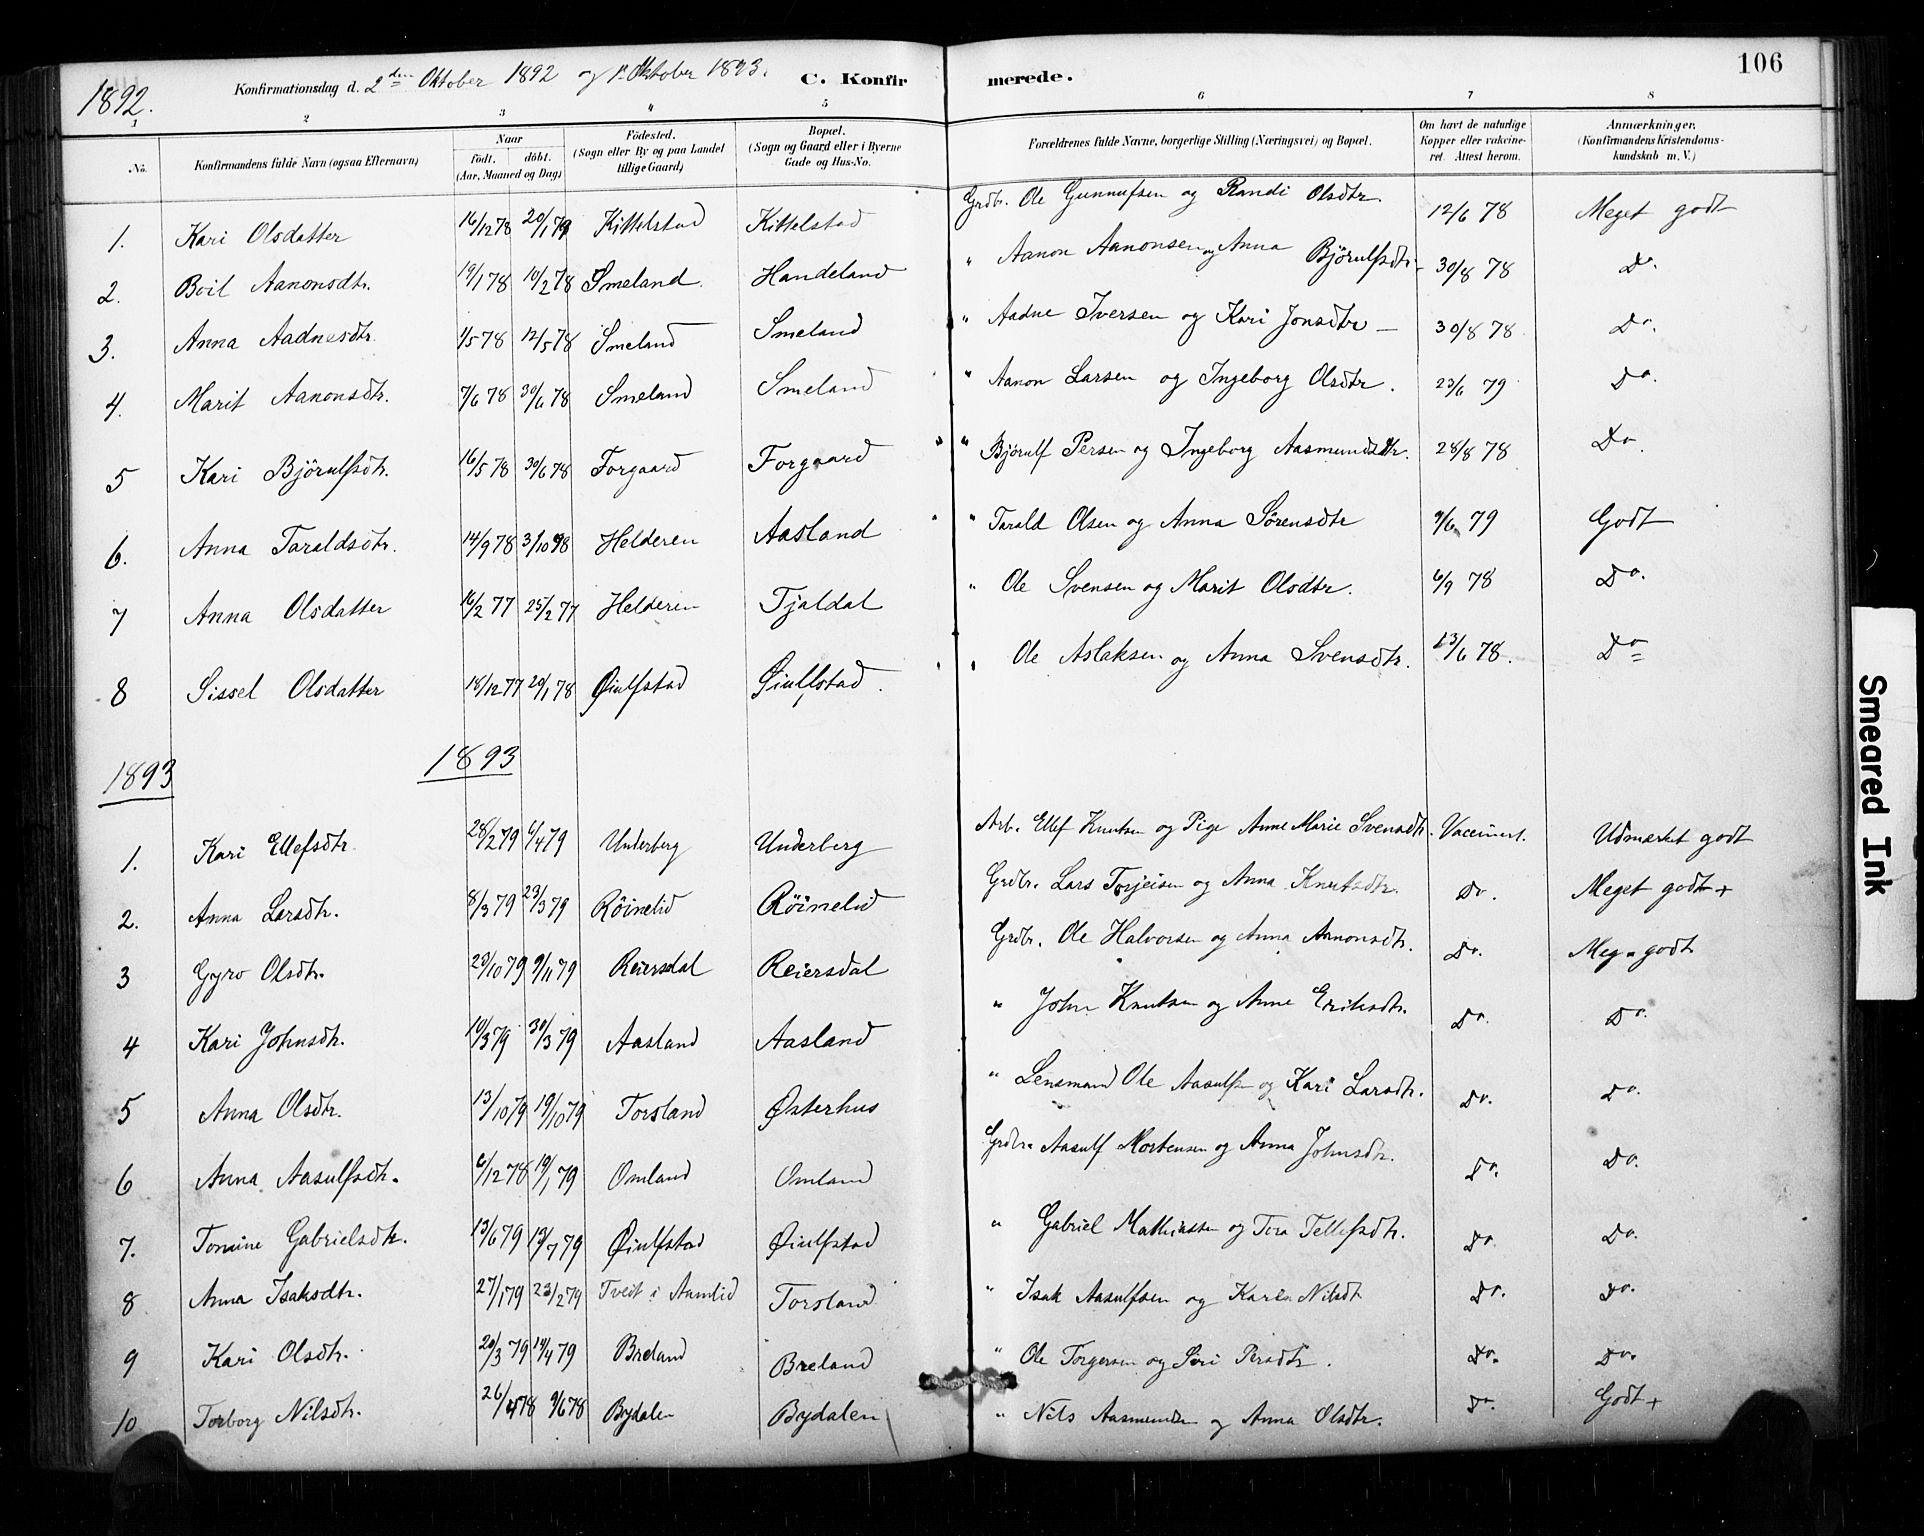 106
1892. Konfirmationsdag d. 2den Oktober 1892 og 1ste Oktober 1893. C. Konfirmerede.
1 2 3 4 5 6 7 8
No. Konfirmandens fulde Navn (ogsaa Efternavn) Naar födt. döbt. (Aar, Maaned og Dag) Födested. (Sogn eller By og paa Landet tillige Gaard) Bopæl. (Sogn og Gaard eller i Byerne Gade og Hus-No. Forældrenes fulde Navne, borgerlige Stilling (Næringsvei) og Bopæl. Om havt de naturlige Kopper eller vakcineret. Attest herom. Anmærkninger. (Konfirmandens Kristendomskundskab m. V.)
1. Kari Olsdatter 16/12 78 20/1 79 Kittelstad Kittelstad Grdbr. Ole Gunnufsen og Randi Olsdtr. 12/6 78 Meget godt
2. Boil Aanonsdtr. 19/1 78 10/2 78 Smeland. Handeland " Aanon Aanonsen og Anna Björulfsdtr. 30/8 78 Do.
3. Anna Aadnesdtr. 1/5 78 12/5 78 Smeland Smeland " Aadne Iversen og Kari Jonsdtr – 30/8 78 Do.
4. Marit Aanonsdtr. 7/6 78 30/6 78 Smeland Smeland " Aanon Larsen og Ingeborg Olsdtr. 23/6 79 Do.
5 Kari Björulfsdtr. 16/5 78 30/6 78 Forgaard Forgaard " " Bjørulf Persen og Ingeborg Aasmundsdtr. 28/8 78 Do.
6. Anna Taraldsdtr. 14/9 78 3/10 98 Helderen Aasland " " Tarald Olsen og Anna Sörensdtr 9/6 79 Godt
7 Anna Olsdatter 16/2 77 25/2 77 Helderen Tjaldal " Ole Svensen og Marit Olsdtr. 6/9 78 Do.
8 Sissel Olsdatter 18/12 77 20/1 78 Øiulfstad Øiulfstad. " " Ole Aslaksen og Anna Svensdtr. 13/6 78. Do
1893 1893
1. Kari Ellefsdtr. 28/2 79 6/4 79 Underberg Underberg Arb. Ellef Knutsen og Pige Anne Marie Svensdtr. Vaccinert. Udmærket godt
2. Anna Larsdtr. 8/3 79 23/3 79 Röinelid Röinelid Grdbr. Lars Torjeisen og Anna Knutsdtr. Do. Meget godt +
3 Gyro Olsdtr. 23/10 79 9/11 79 Reiersdal Reiersdal Grdbr. Ole Halvorsen og Anna Aanonsdtr. Do. Meg. godt
4 Kari Johnsdtr. 10/3 79 30/3 79 Aasland Aasland " John Knutsen og Anne Eriksdtr. Do. Do.
5 Anna Olsdtr. 13/10 79 19/10 79 Torsland Østerhus " Lensmand Ole Aasulfsen og Kari Larsdtr. Do. Do.
6 Anna Aasulfsdtr. 6/12 78 19/1 79 Omland Omland Grdbr. Aasulf Mortensen og Anna Johnsdtr. Do. Do.
7. Tomine Gabrielsdtr. 13/6 79 13/7 79 Øiulfstad Øiulfstad " Gabriel Mathiassen og Tora Tellefsdtr. Do. Do.
8 Anna Isaksdtr. 27/1 79 23/2 79 Tveit i Aamlid Torsland " Isak Aasulfsen og Karen Nilsdt Do. Do.
9 Kari Olsdtr. 20/3 79 14/4 79 Breland Breland " Ole Torgersen og Siri Persdtr. Do. Do.
10 Torborg Nilsdtr. 26/4 78 9/6 78 Bydalen Bydalen " Nils Aasmundsen og Anna Olsdtr. Do. Godt +
Smeared Ink